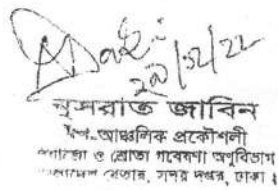 ২৯/১২/২২
নুসরাত জাবিন
আঞ্চলিক প্রকৌশলী
ও শ্রোতা গবেষণা অণুবিভাগ
বেতার, সদর দপ্তর, ঢাকা।